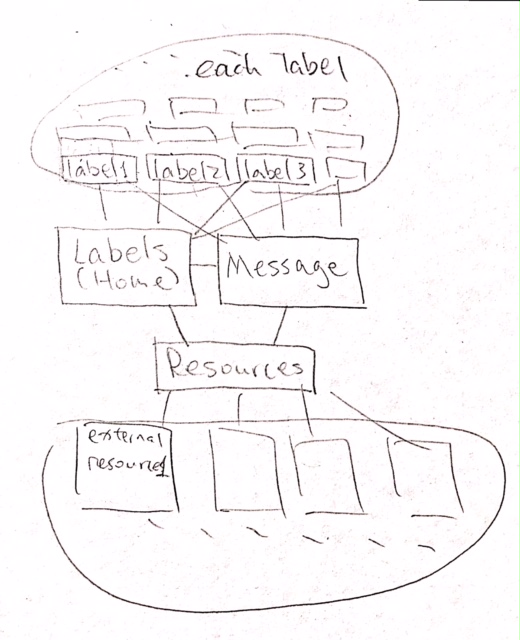 .each label
label1 label2 label3
Labels
(Home)
Message
Resources
external
resource1